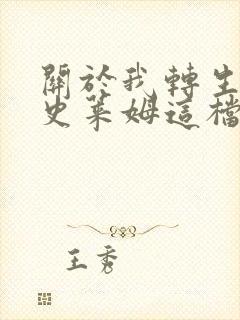 關於我轉生
史萊姆這檔
王秀